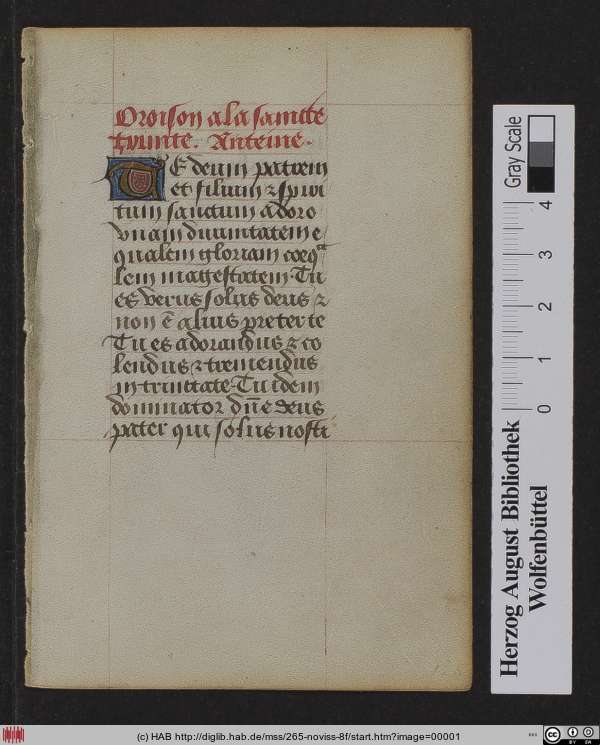 Oroison a la saincte
trinite. Anteine.
TE deum patrem
et filium ⁊ spiri
tum sanctum adoro
vnam diuinitatem e
qualem gloriam coeqᵃ
lem magestatem Tu
es verus solus deus ⁊
non ē alius preter te
Tu es adorandus ⁊ co
lendus ⁊ tremendus
in trinitate Tu idem
dominator dn̄e deus
pater qui solus nosti
Gray Scale
4
3
2
1
0
Herzog August Bibliothek
Wolfenbüttel
(c) HAB http://diglib.hab.de/mss/265-noviss-8f/start.htm?image=00001
BY SA